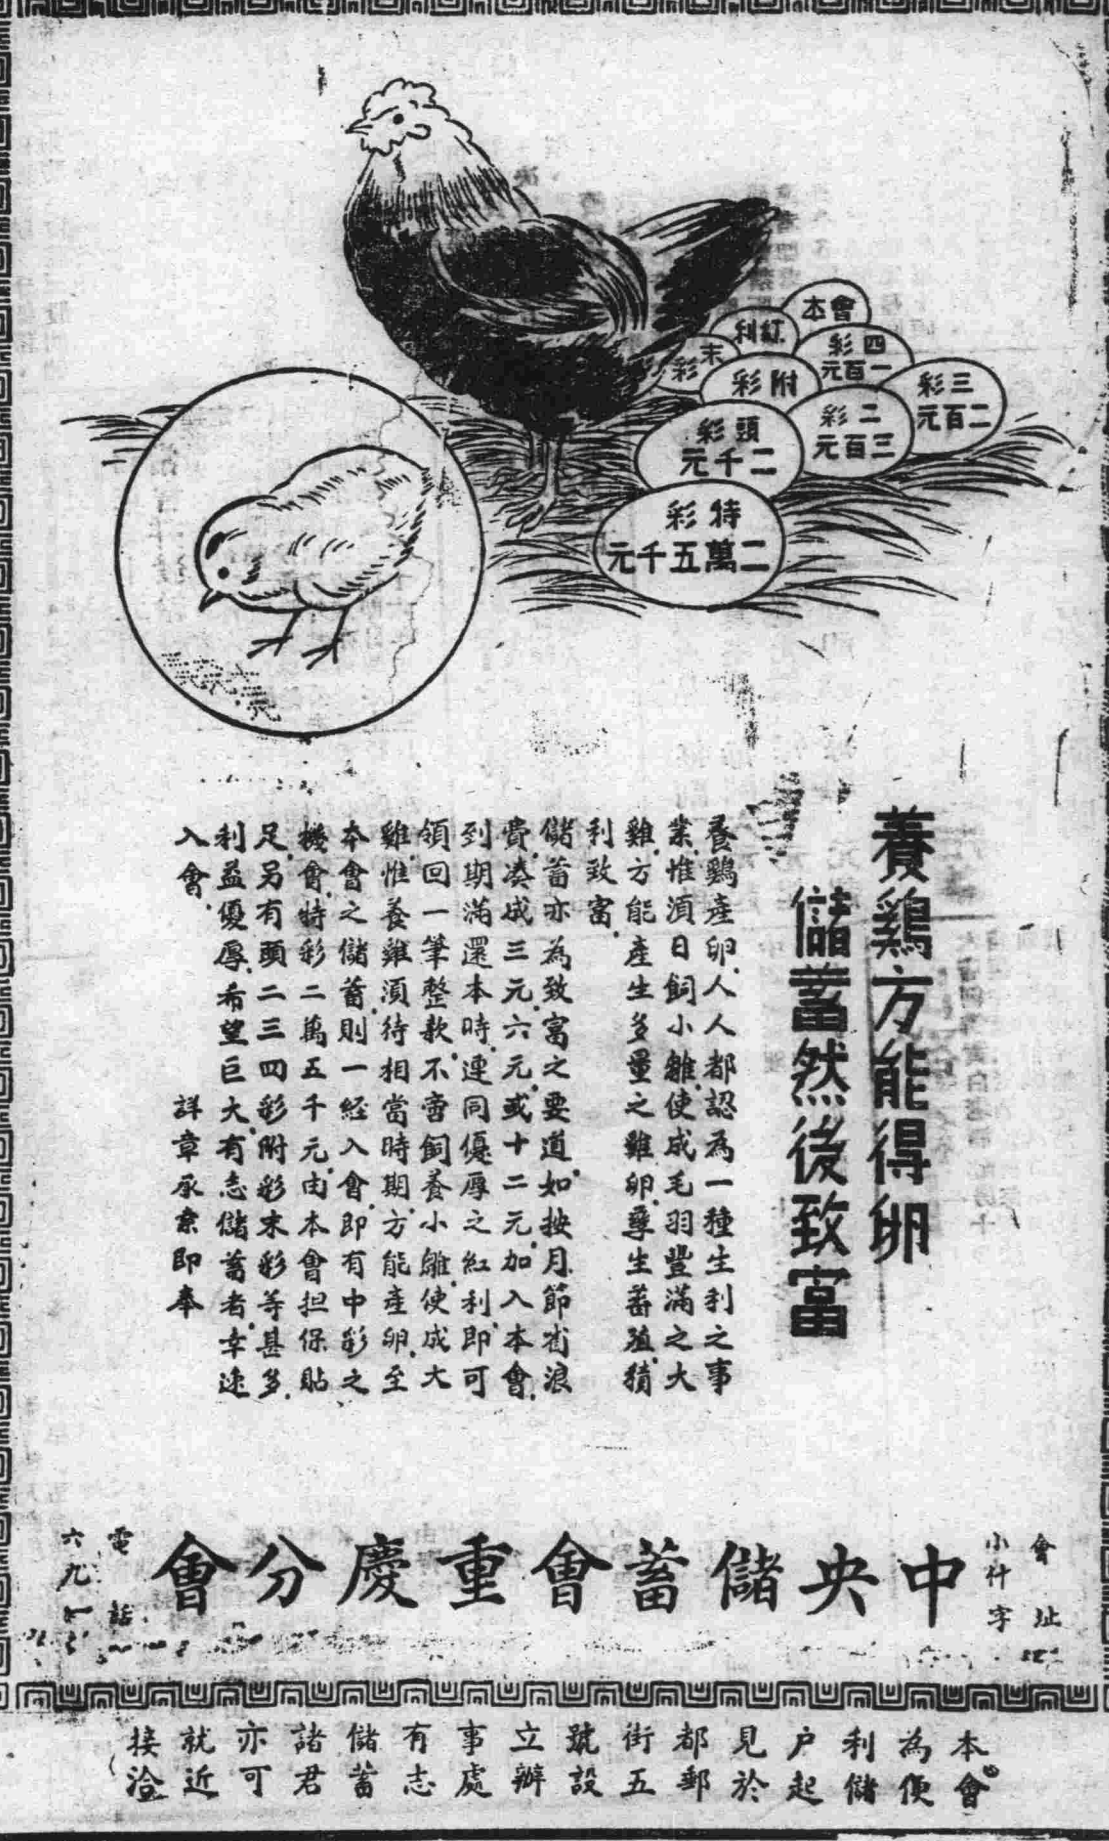 會本
紅利
末彩
四彩
一百元
附彩
三彩
二百元
二彩
三百元
頭彩
二千元
特彩
二萬五千元
養鷄方能得卵
儲蓄然後致富
養鷄產卵人人都認為一種生利之事
業惟須日飼小雛使成毛羽豐滿之大
雞方能產生多量之雞卵孳生蕃殖積
利致富
儲蓄亦為致富之要道如按月節省浪
費湊成三元六元或十二元加入本會
到期滿還本時連同優厚之紅利即可
領回一筆整款不啻飼養小雛使成大
雞惟養雞須待相當時期方能產卵至
本會之儲蓄則一経入會即有中彩之
機會特彩二萬五千元由本會担保貼
足另有頭二三四彩附彩末彩等甚多
利益優厚希望巨大有志儲蓄者幸速
入會
詳章承索即奉
會址
小什字
中央儲蓄會重慶分會
電話
六九
本會為便利儲户起見於都郵街五號設立辦事處有志儲蓄諸君亦可就近接洽